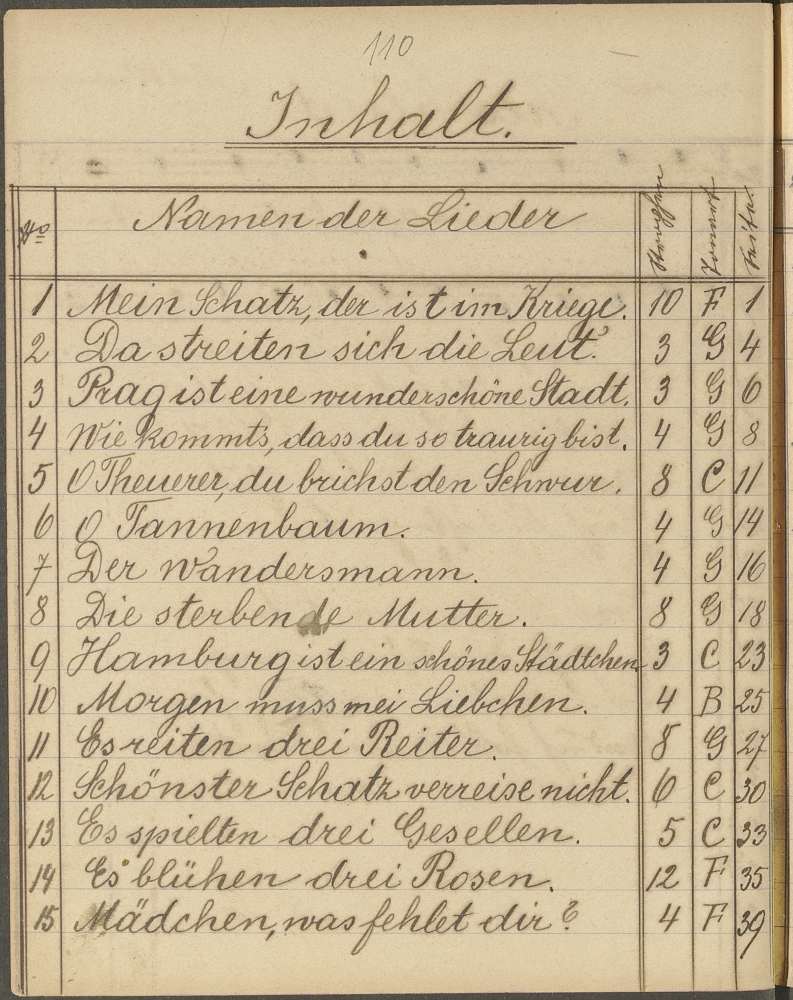 110
Inhalt.
No Namen der Lieder Strophen Tonart Seite
1 Mein Schatz, der ist im Kriege. 10 F 1
2 Da streiten sich die Leut'. 3 G 4
3 Prag ist eine wunderschöne Stadt. 3 G 6
4 Wie kommt's, dass du so traurig bist. 4 G 8
5 O Theuerer, du brichst den Schwur. 8 C 11
6 O Tannenbaum. 4 G 14
7 Der Wandersmann. 4 G 16
8 Die sterbende Mutter. 8 G 18
9 Hamburg ist ein schönes Städtchen. 3 C 23
10 Morgen muss mei Liebchen. 4 B 25
11 Es reiten drei Reiter. 8 G 27
12 Schönster Schatz verreise nicht. 6 C 30
13 Es spielten drei Gesellen. 5 C 33
14 Es blühen drei Rosen. 12 F 35
15 Mädchen, was fehlet dir? 4 F 39